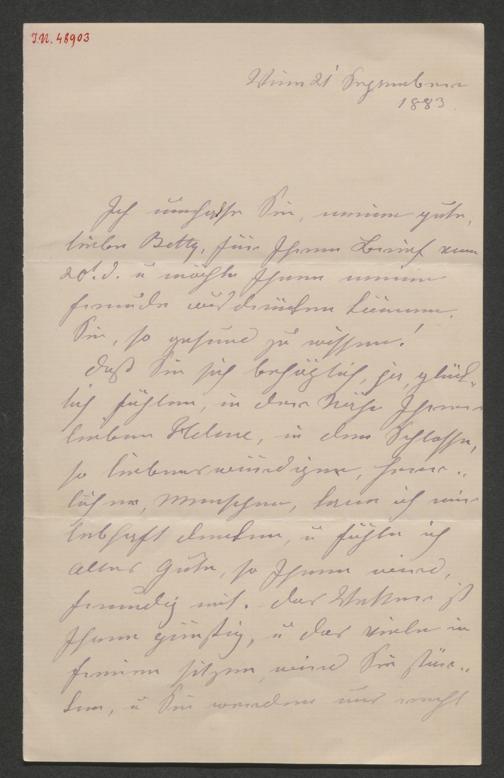 I.N. 48903
Wien 21' September
1883.
Ich umhalse Sie, meine gute,
liebe Betty, für Ihren Brief vom
20t. d. u möchte Ihnen meine
Freude ausdrücken können,
Sie, so gesund zu wissen!
Daß Sie sich behaglich, ja, glück-
lich fühlen, in der Nähe Ihrer
lieben Helene, in dem Schlosse,
so liebenswürdiger, herr-
licher, Menschen, kann ich mir
lebhaft denken, u fühle ich
alles Gute, so Ihnen wird,
freudig mit. Das Wetter ist
Ihnen günstig, u das viele im
Freien sitzen, wird Sie stär-
ken, u Sie werden uns recht